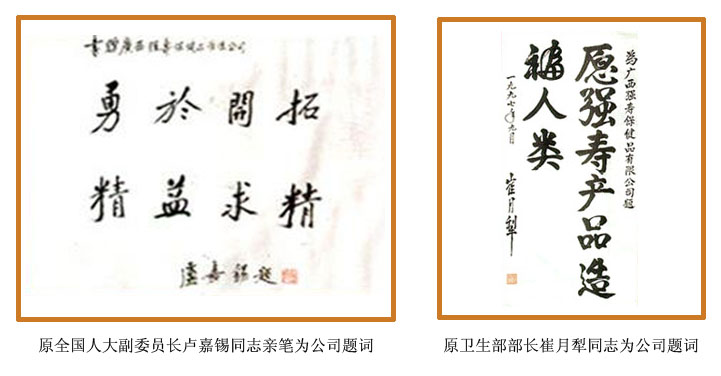 書贈廣西强寿保健品有限公司
勇於開拓
精益求精
盧嘉錫題
為广西强寿保健品有限公司題
愿强寿产品造
福人类
一九九七年九月
崔月犁
原全国人大副委员长卢嘉锡同志亲笔为公司题词
原卫生部部长崔月犁同志为公司题词